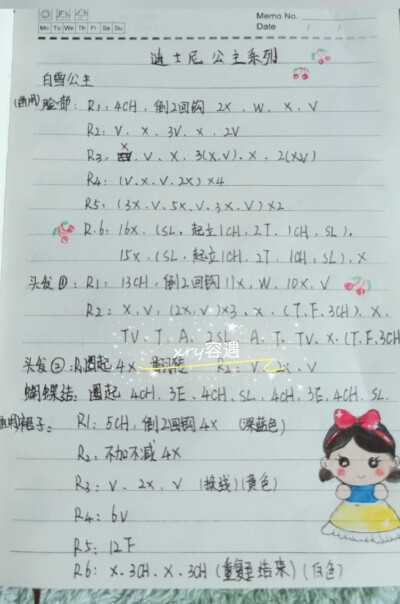 Memo No.
Mo Tu We Th Fr Sa Su
Date / /
迪士尼公主系列
白雪公主
(画网)脸部: R1: 4CH, 倒2回钩 2X、W、X、V
R2: V、X、3V、X、2V
R3: X、V、X、3(X.V)、X、2(XV)
R4: (V.X、V、2X)×4
R5: (3X、V、5X、V、3X、V)×2
R.6: 16X (SL, 起立1CH, 2T、1CH, SL),
15X、(SL, 起立1CH、2T、1CH, SL), X
头发①: R1: 13CH, 倒2回钩11X、W、10X、V
R2: X、V、(2X、V)×3、X、(T.F.3CH)、X、
TV、T、A、2SL、A、T、TV、X、(T.F.3CH
xry容遇
头发②: R1圈起4X R2: V、2X、V
蝴蝶结: 圈起 4CH、3E、4CH、SL、4CH、3E、4CH、SL.
裙子: R1: 5CH, 倒2回钩4X (深蓝色)
R2: 不加不减4X
R3: V、2X、V (接线)(黄色)
R4: 6V
R5: 12F
R6: X、3CH、X、3CH (重复至结束)(白色)